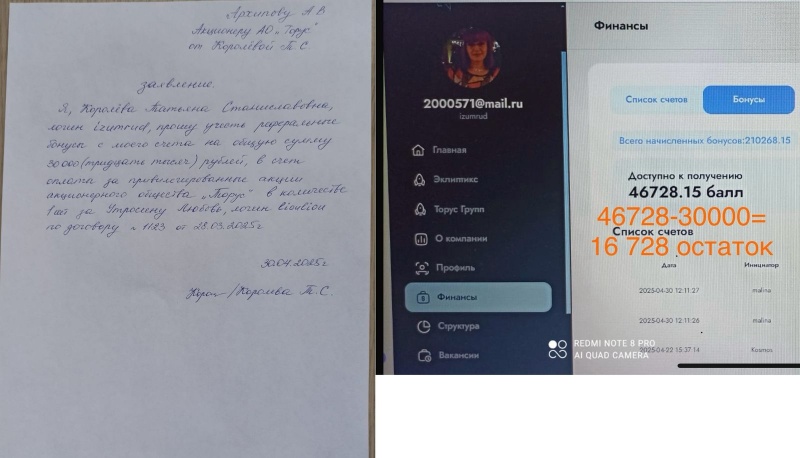 Архипову А.В
Акционеру АО „Торус"
от Королёвой Т.С.
заявление.
Я, Королёва Татьяна Станиславовна,
логин izumrud, прошу учесть реферальные
бонусы с моего счета на общую сумму
30000 (тридцать тысяч) рублей, в счет
оплаты за привилегированные акции
акционерного общества „Торус" в количестве
1 шт за Утросину Любовь, логин
по договору н 1123 от 28.03.2025г
30.04.2025г
/Королева Т.С.
2000571@mail.ru
izumrud
Главная
Эклиптикс
Торус Групп
О компании
Профиль
Финансы
Структура
Вакансии
Финансы
Список счетов
Бонусы
Всего начисленных бонусов:210268.15
Доступно к получению
46728.15 балл
46728-30000=
16 728 остаток
Список счетов
Дата Инициатор
2025-04-30 12:11:27 malina
2025-04-30 12:11:26 malina
2025-04-22 15:37:14 Kosmos
REDMI NOTE 8 PRO
AI QUAD CAMERA